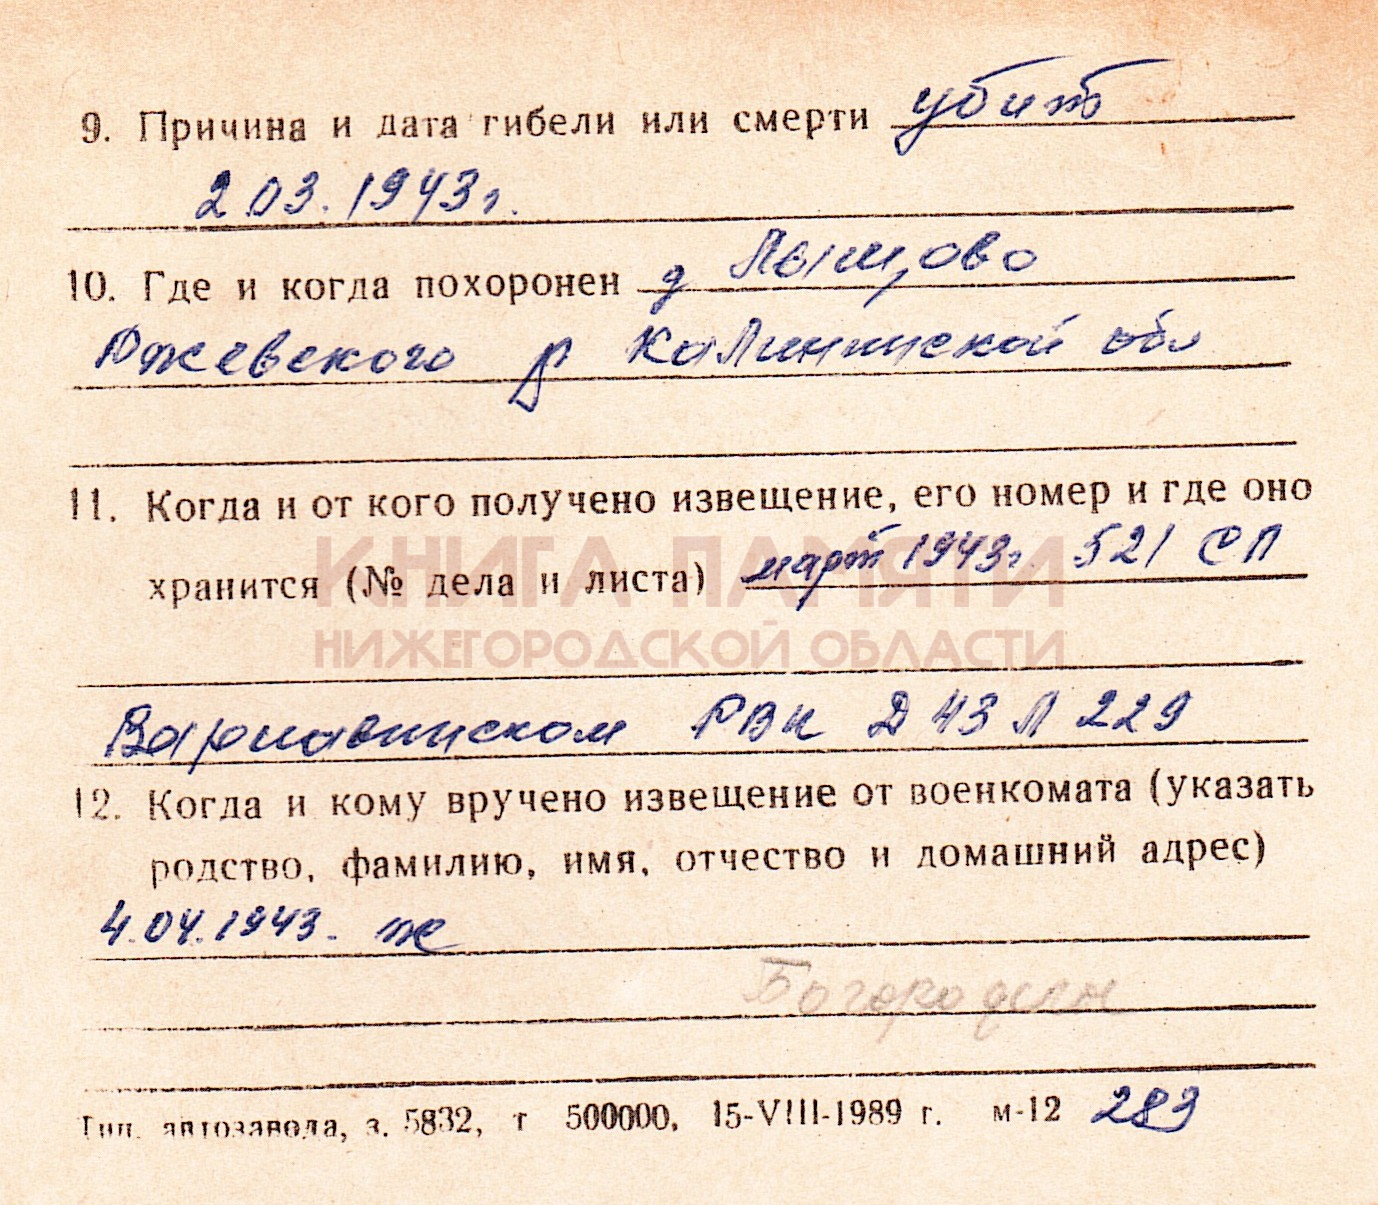 9. Причина и дата гибели или смерти убит
2.03.1943г.
10. Где и когда похоронен д Лыщово
Ржевского р Калининской обл
11. Когда и от кого получено извещение, его номер и где оно
хранится (№ дела и листа) март 1943г. 521 СП
КНИГА ПАМЯТИ
НИЖЕГОРОДСКОЙ ОБЛАСТИ
Варнавинском РВК Д 43 Л 229
12. Когда и кому вручено извещение от военкомата (указать
родство, фамилию, имя, отчество и домашний адрес)
4.04.1943.
Тип. автозавода, з. 5832, т 500000, 15-VIII-1989 г. м-12 283